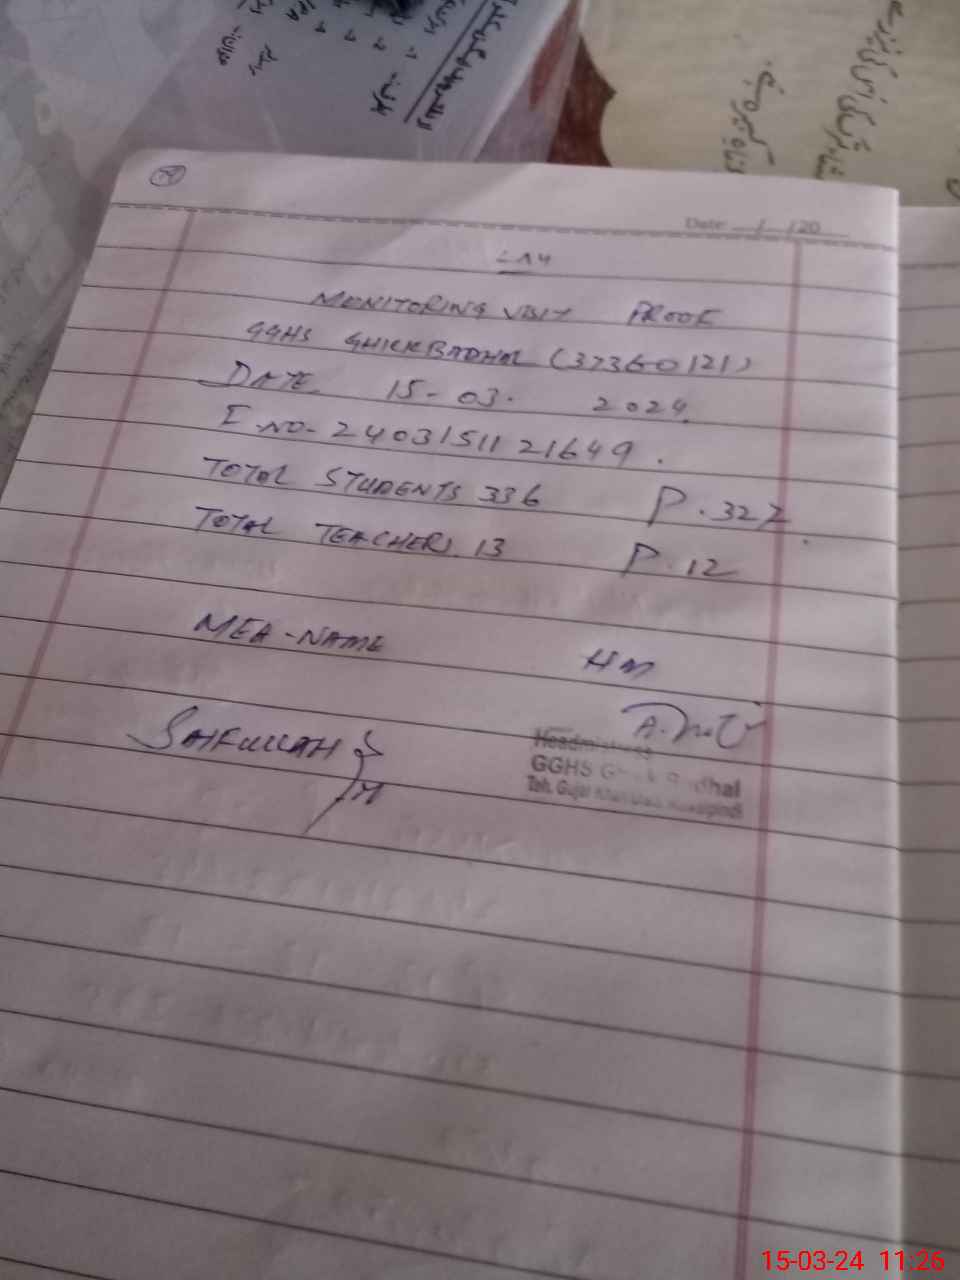 Date / /20
MONITORING VISIT PROOF
GGHS GHICK BADHAL (37360121)
DATE. 15-03. 2024.
E.NO- 2403151121649.
TOTAL STUDENTS 336 P.322
TOTAL TEACHERS. 13 P.12
MEA-NAME HM
SAIFULLAH
Headmistress
GGHS Badhal
Teh. Gujar Khan Rawalpindi
15-03-24 11:26